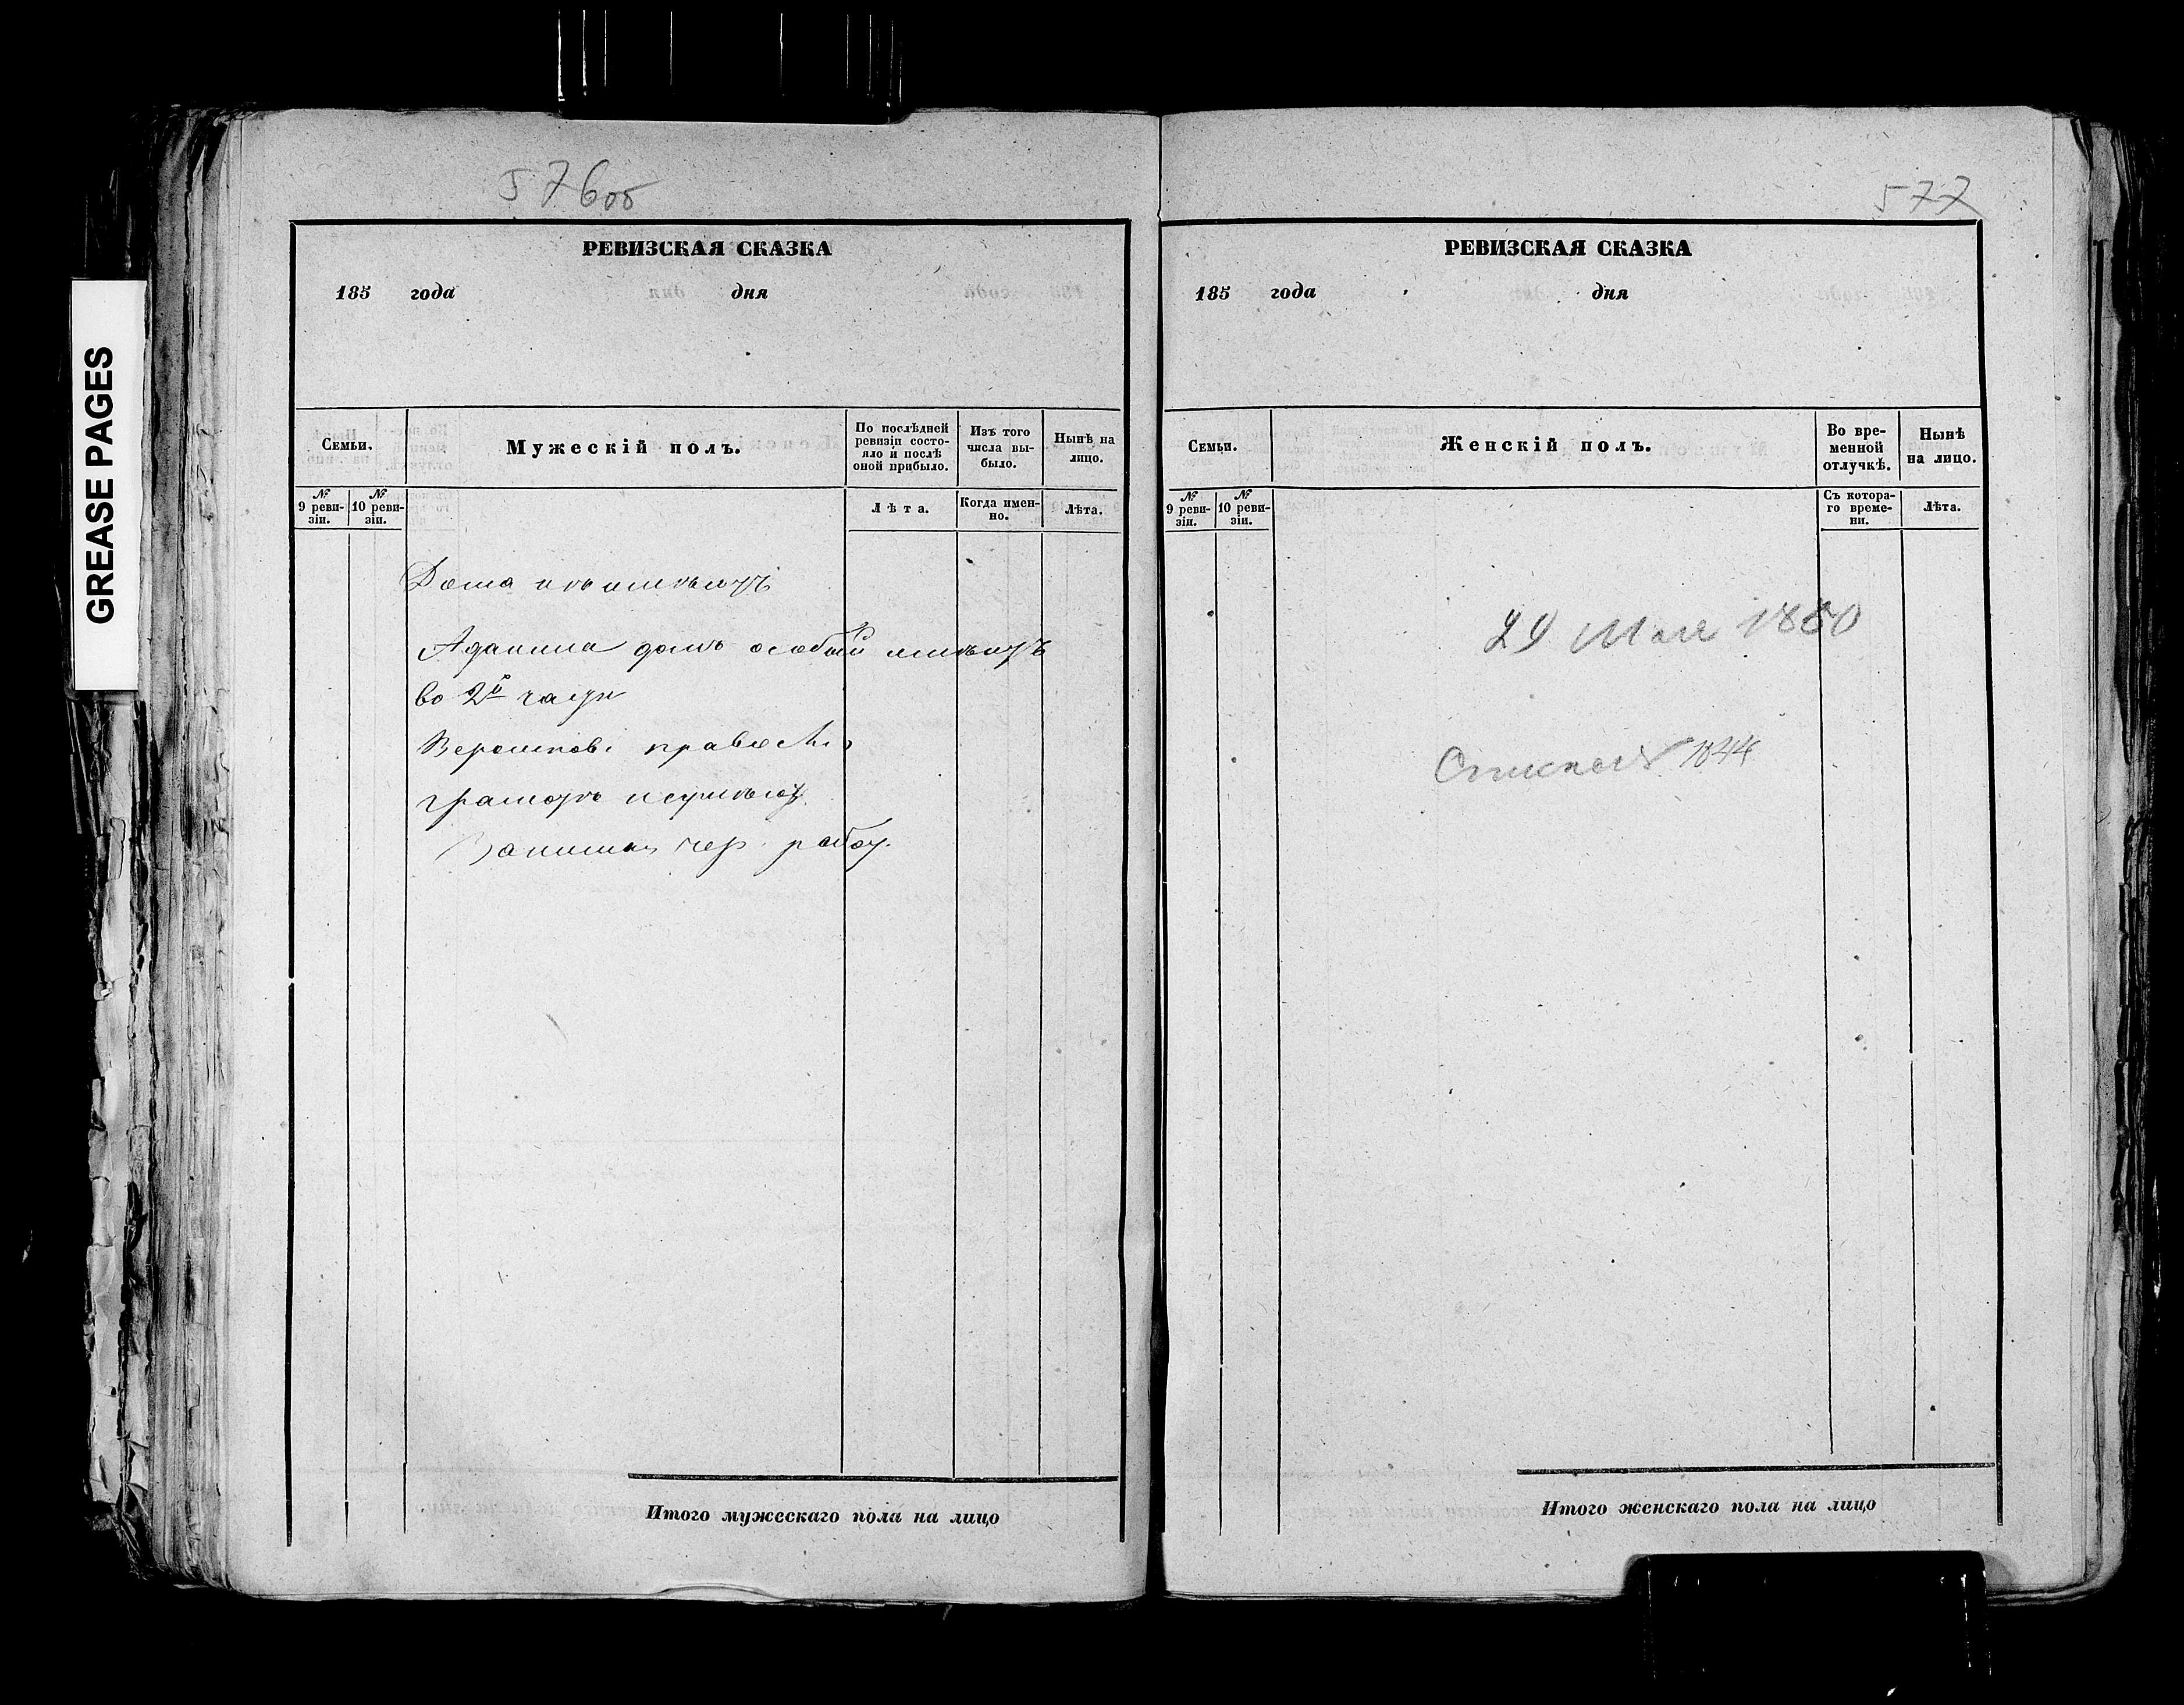 576об
РЕВИЗСКАЯ СКАЗКА
185 года дня
Семьи.
Мужескій полъ.
По послѣдней ревизіи состо-
яло и послѣ оной прибыло.
Изъ того числа вы-
было.
Нынѣ на лицо.
№ 9 реви-
зіи.
№ 10 реви-
зіи.
Лѣта.
Когда имен-
но.
Лѣта.
Дома не имѣютъ
домъ особый имѣютъ
во 2й части
правосл
грамотѣ не умѣютъ
чер. работ.
Итого мужескаго пола на лицо
577
РЕВИЗСКАЯ СКАЗКА
185 года дня
Семьи.
Женскій полъ.
Во вре-
менной отлучкѣ.
Нынѣ на лицо.
№ 9 реви-
зіи.
№ 10 реви-
зіи.
Съ котора-
го време-
ни.
Лѣта.
29 Мая
1844
Итого женскаго пола на лицо
GREASE PAGES